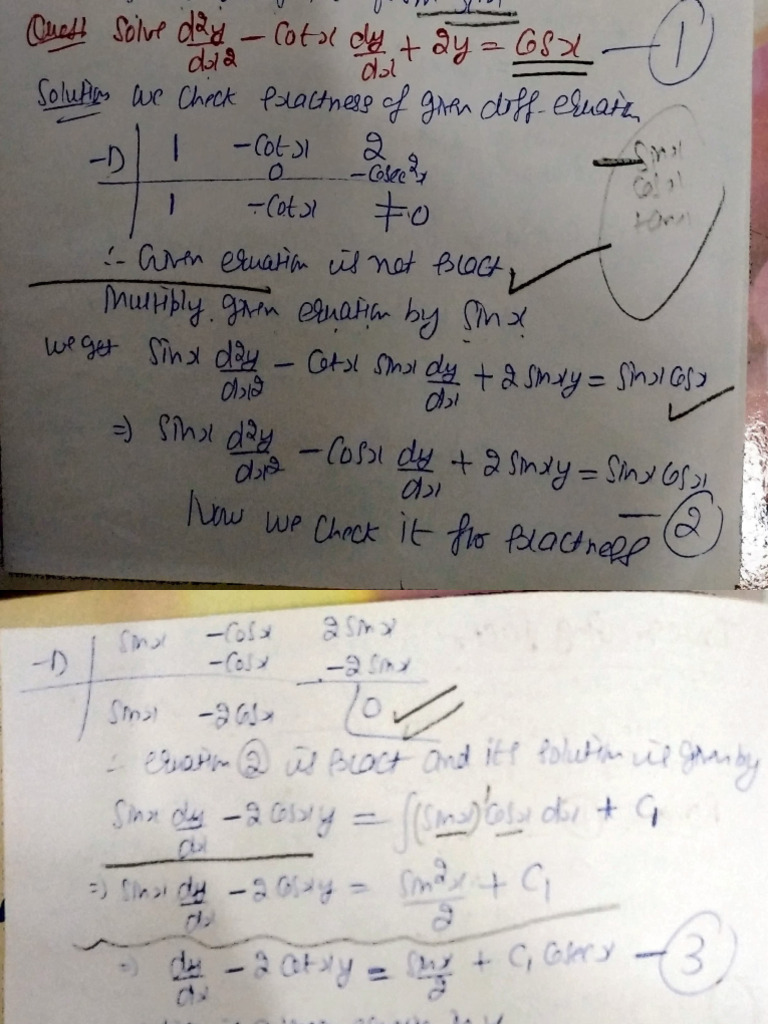 Ques:- Solve d²y/dx² - Cotx dy/dx + 2y = Cosx — 1
Solution We Check Exactness of given diff. equation
-D | 1 -Cotx 2
0 -Cosec²x
1 -Cotx ≠0
∴ Given equation is not Exact
Sinx
Cosx
tanx
Multiply given equation by Sinx
we get Sinx d²y/dx² - Cotx Sinx dy/dx + 2Sinxy = Sinx Cosx
⇒ Sinx d²y/dx² - Cosx dy/dx + 2Sinxy = Sinx Cosx
— 2
Now we Check it for Exactness
-D | Sinx -Cosx 2Sinx
-Cosx -2Sinx
Sinx -2Cosx 0
∴ equation 2 is Exact and its Solution is given by
Sinx dy/dx - 2Cosxy = ∫(Sinx)'Cosx dx + C₁
⇒ Sinx dy/dx - 2Cosxy = Sin²x/2 + C₁
⇒ dy/dx - 2Cotxy = Sinx/2 + C₁ Cosecx — 3